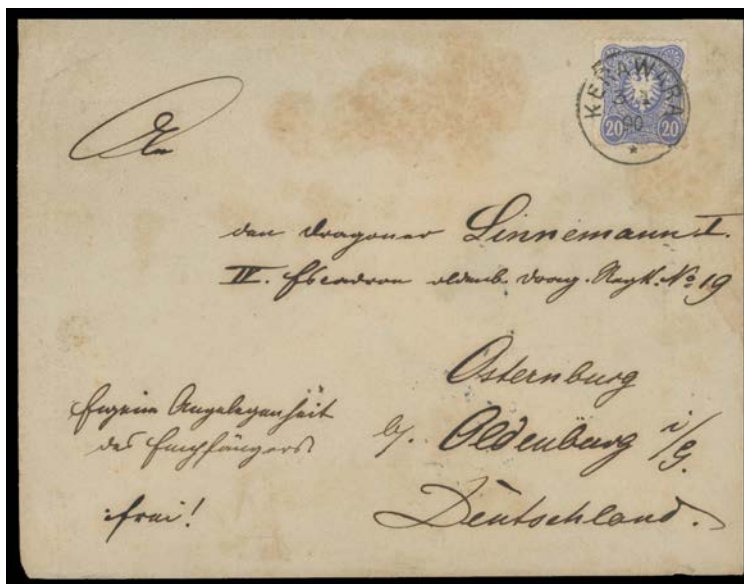 KERAWARA
90
20 20
An
den Dragoner Linnemann I.
IV. Escadron oldenb. Drag. Regt. No 19
Osternburg
b/. Oldenburg i/G.
Deutschland.
Eigene Angelegenheit
des Empfängers
frei!